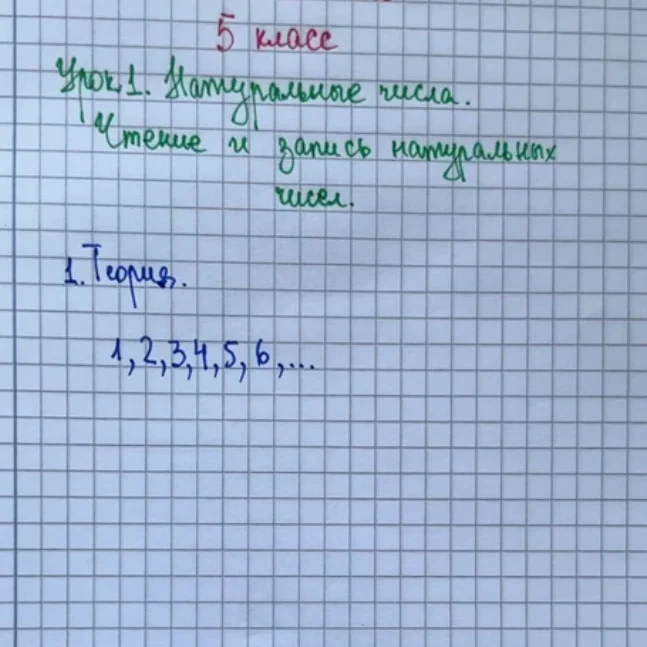 5 класс
Урок 1. Натуральные числа.
Чтение и запись натуральных
чисел.
1. Теория.
1, 2, 3, 4, 5, 6, ...